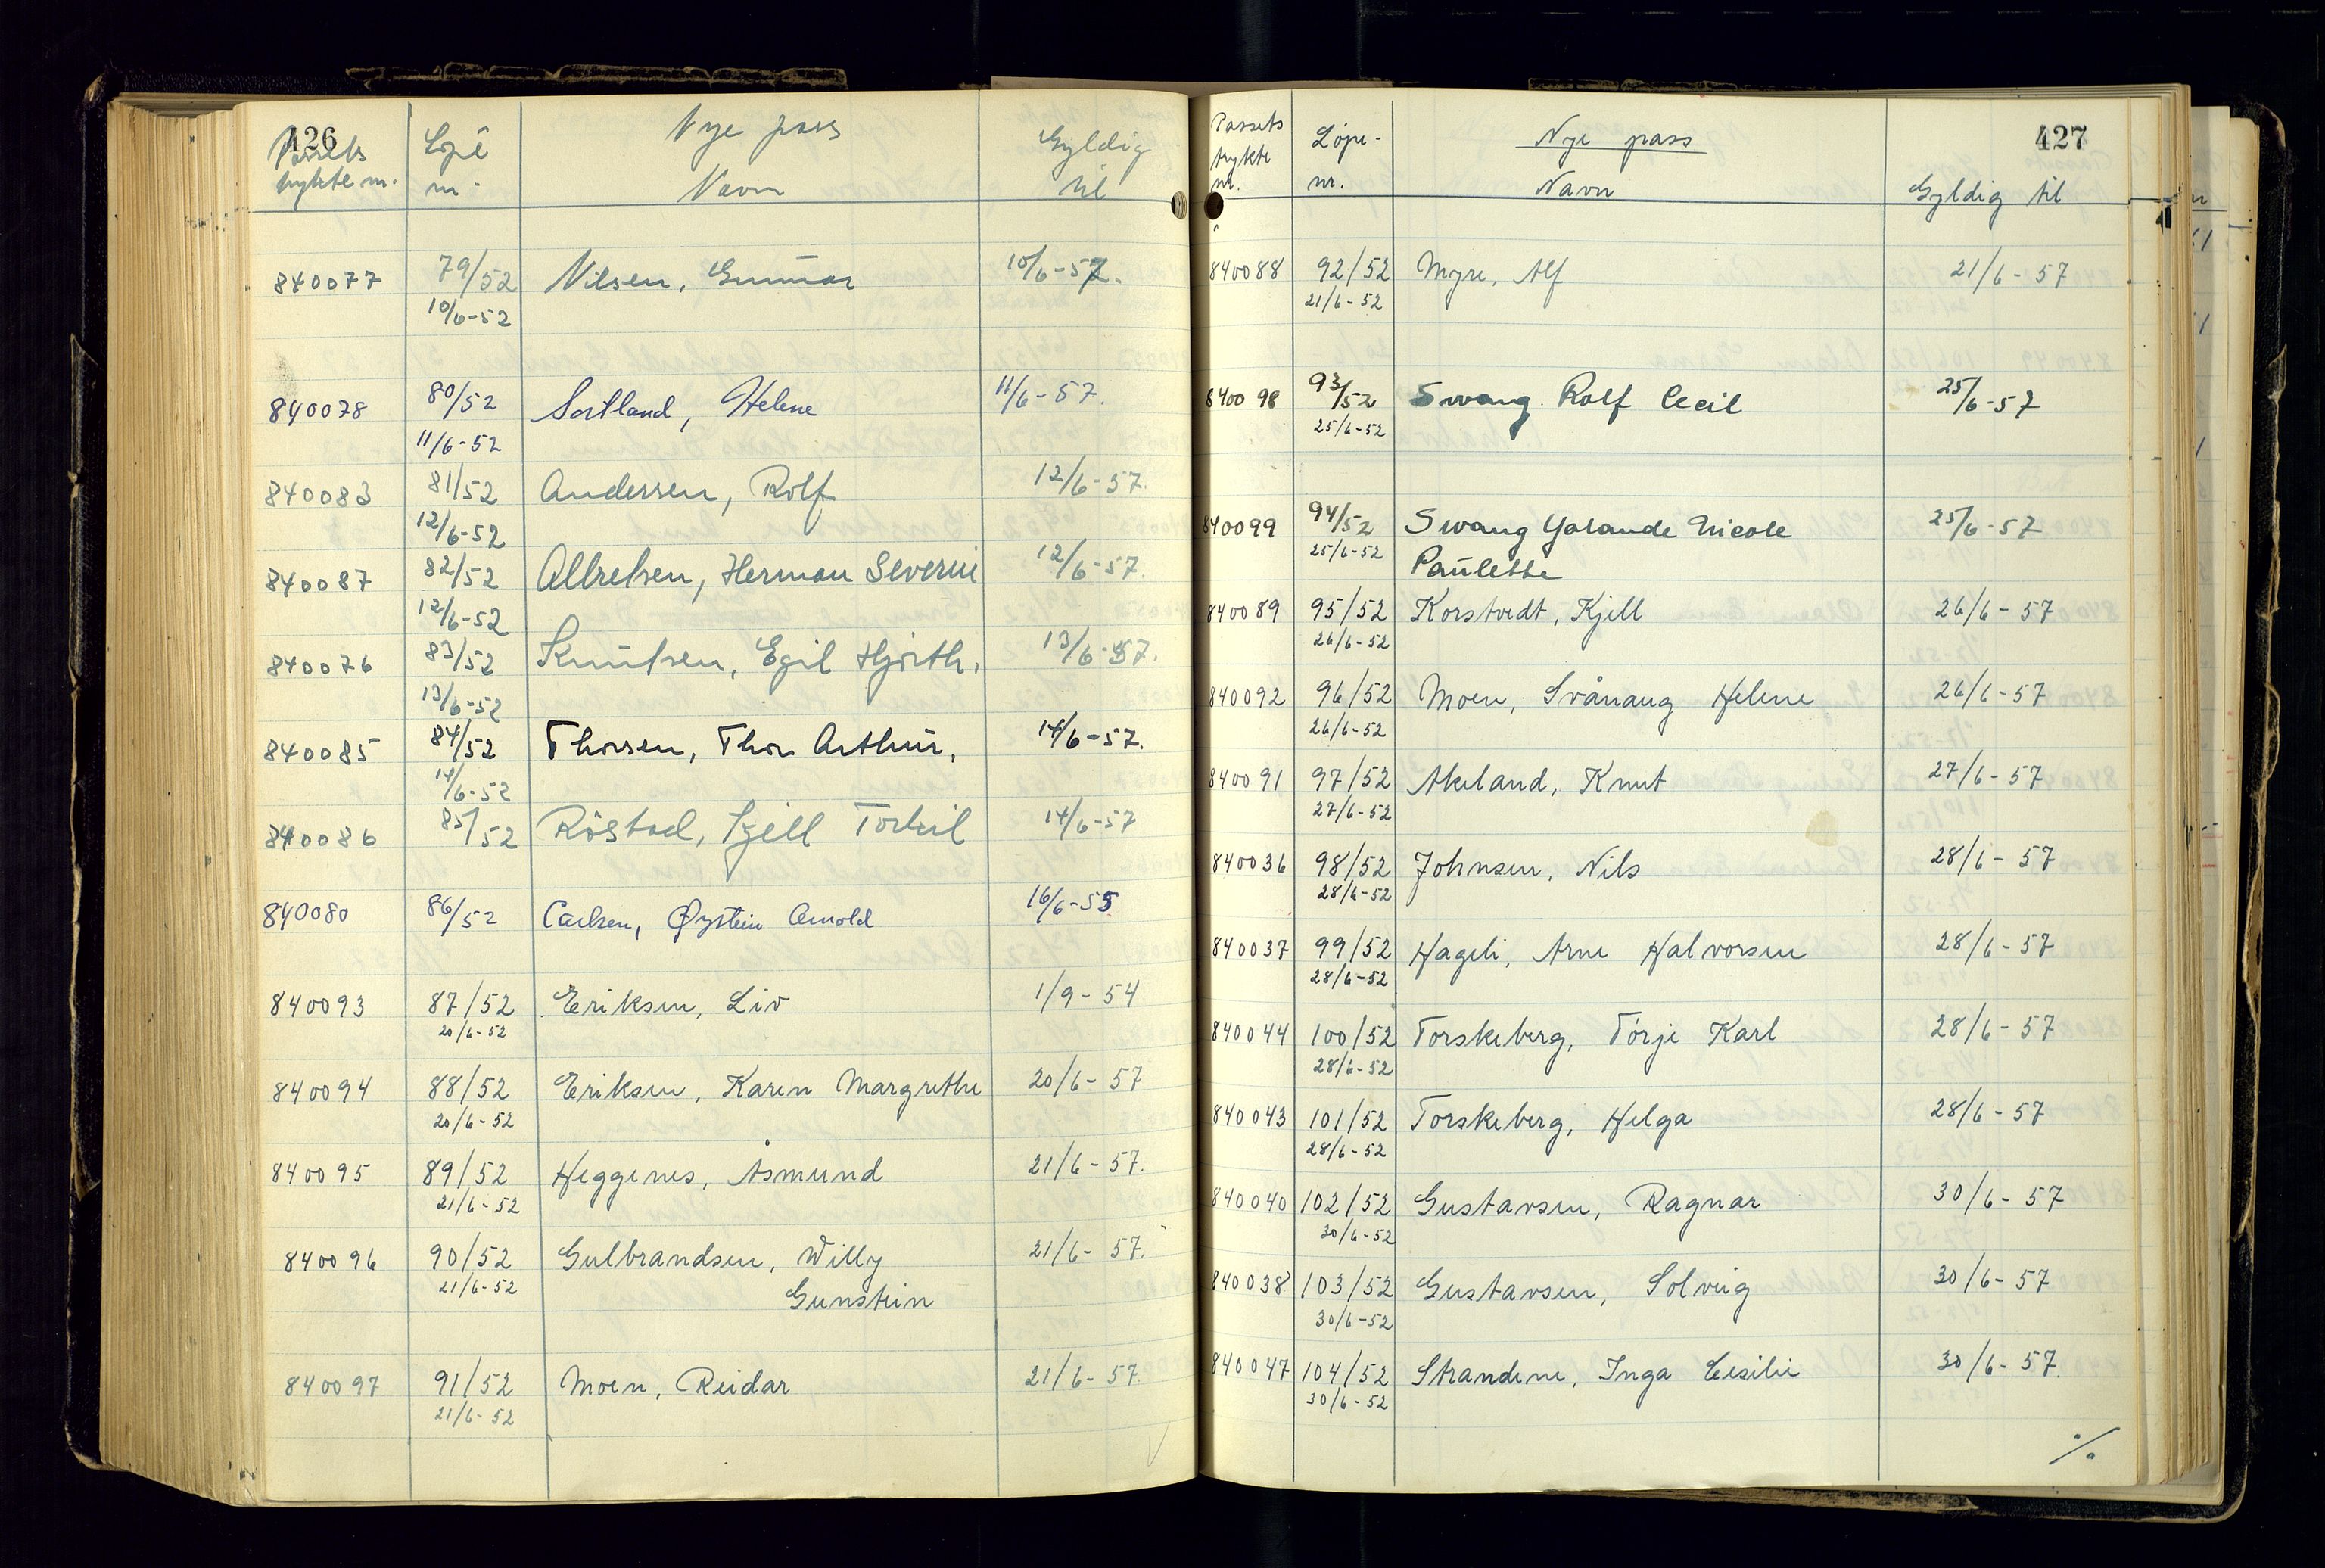 426
Passets trykte nr. Løpe nr. Nye pass Navn Gyldig til
840077 79/52 Nilsen, Gunnar 10/6-57.
10/6-52
840078 80/52 Sortland, Helene 11/6-57.
11/6-52
840083 81/52 Andersen, Rolf 12/6-57.
12/6-52
840087 82/52 Albretsen, Herman Severin 12/6-57.
12/6-52
840076 83/52 Knutsen, Egil Hjorth. 13/6-57.
13/6-52
840085 84/52 Thorsen, Thor Arthur. 14/6-57.
14/6-52
840086 85/52 Röstad, Kjell Torkil 14/6-57
840080 86/52 Carlsen, Øystein Arnold 16/6-55
840093 87/52 Eriksen, Liv 1/9-54
20/6-52
840094 88/52 Eriksen, Karen Margrethe 20/6-57
20/6-52
840095 89/52 Heggenes, Åsmund 21/6-57.
21/6-52
840096 90/52 Gulbrandsen, Willy 21/6-57.
21/6-52 Gunstein
840097 91/52 Moen, Reidar 21/6-57.
21/6-52
427
Passets trykte nr. Løpe-nr. Nye pass Navn Gyldig til
840088 92/52 Myre, Alf 21/6-57
21/6-52
840098 93/52 Swang Rolf Cecil 25/6-57
25/6-52
840099 94/52 Swang Yolande Nicole 25/6-57
25/6-52 Paulette
840089 95/52 Korstvedt, Kjell 26/6-57
26/6-52
840092 96/52 Moen, Svånaug Helene 26/6-57
26/6-52
840091 97/52 Akeland, Knut 27/6-57
27/6-52
840036 98/52 Johnsen, Nils 28/6-57
28/6-52
840037 99/52 Hageli, Arne Halvorsen 28/6-57
28/6-52
840044 100/52 Torskeberg, Törje Karl 28/6-57
28/6-52
840043 101/52 Torskeberg, Helga 28/6-57
28/6-52
840040 102/52 Gustavsen, Ragnar 30/6-57
30/6-52
840038 103/52 Gustavsen, Solveig 30/6-57
30/6-52
840047 104/52 Strandene, Inga Cesilie 30/6-57.
30/6-52
./.